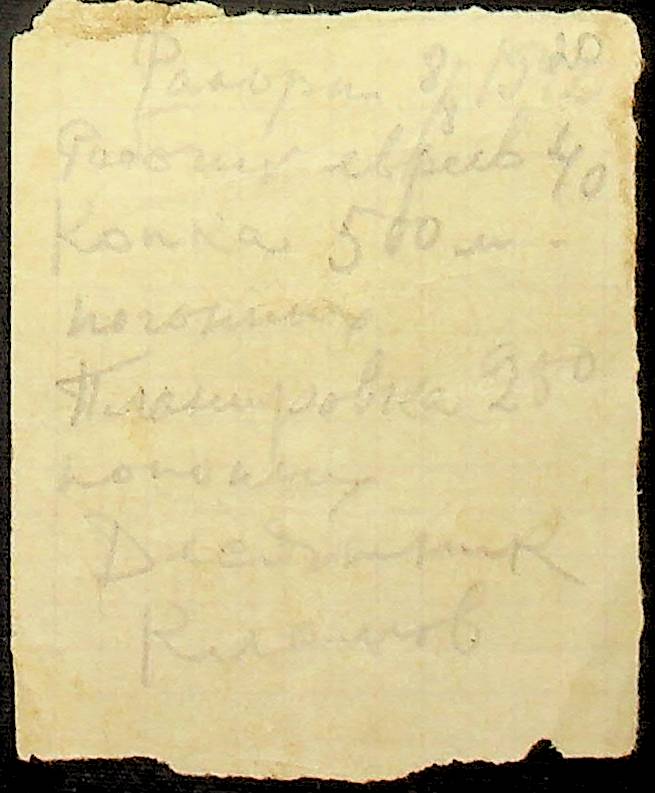 Рапорт 8/8 19
Рабочих евреев 40
Копка 500 м.
погонных
Планировка 250
погоных
Десятник